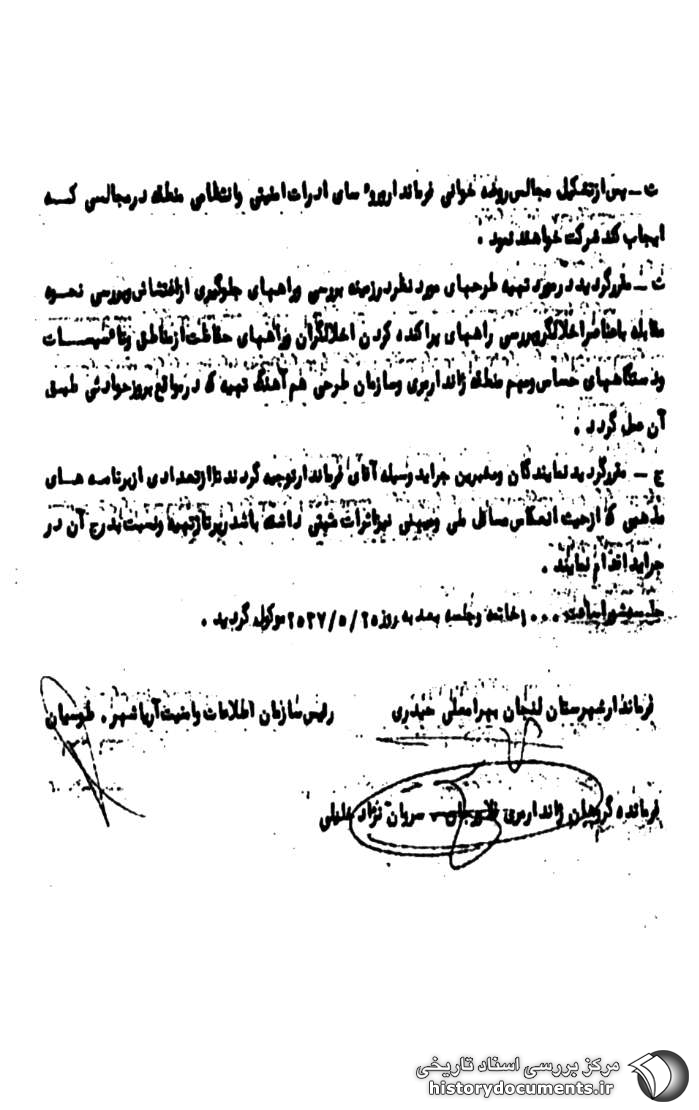 ت - پس از تشکیل مجالس روضه خوانی فرماندار و روسای ادارات امنیتی و انتظامی منطقه در مجالسی که
ایجاب کند شرکت خواهند نمود .
ث - مقرر گردید در مورد تهیه طرحهای مورد نظر در زمینه بررسی و راههای جلوگیری از اغتشاش و بررسی نحوه
مقابله با عناصر اخلالگر و بررسی راههای پراکنده کردن اخلالگران و راههای حفاظت از مناطق و تاسیسات
و دستگاههای حساس و مهم منطقه ژاندارمری و سازمان طرحی هم آهنگ تهیه که در مواقع بروز حوادثی طبق
آن عمل گردد .
ج - مقرر گردید نمایندگان و مخبرین جراید وسیله آقای فرماندار توجیه گردند تا از تعدادی از برنامه های
مذهبی که از حیث انعکاس مسائل ملی و میهنی نیز اثرات مثبتی داشته باشد تهیه و نسبت بدرج آن در
جراید اقدام نمایند .
جلسه خاتمه و جلسه بعد به روز ۲۵۳۷/۵/۲۵ موکول گردید .
فرماندار شهرستان لنجان بهرامعلی حیدری
رئیس سازمان اطلاعات و امنیت آریاشهر . طوسیان
فرمانده گروهان ژاندارمری فلاورجان - سروان نژاد خلیلی
مرکز بررسی اسناد تاریخی
historydocuments.ir